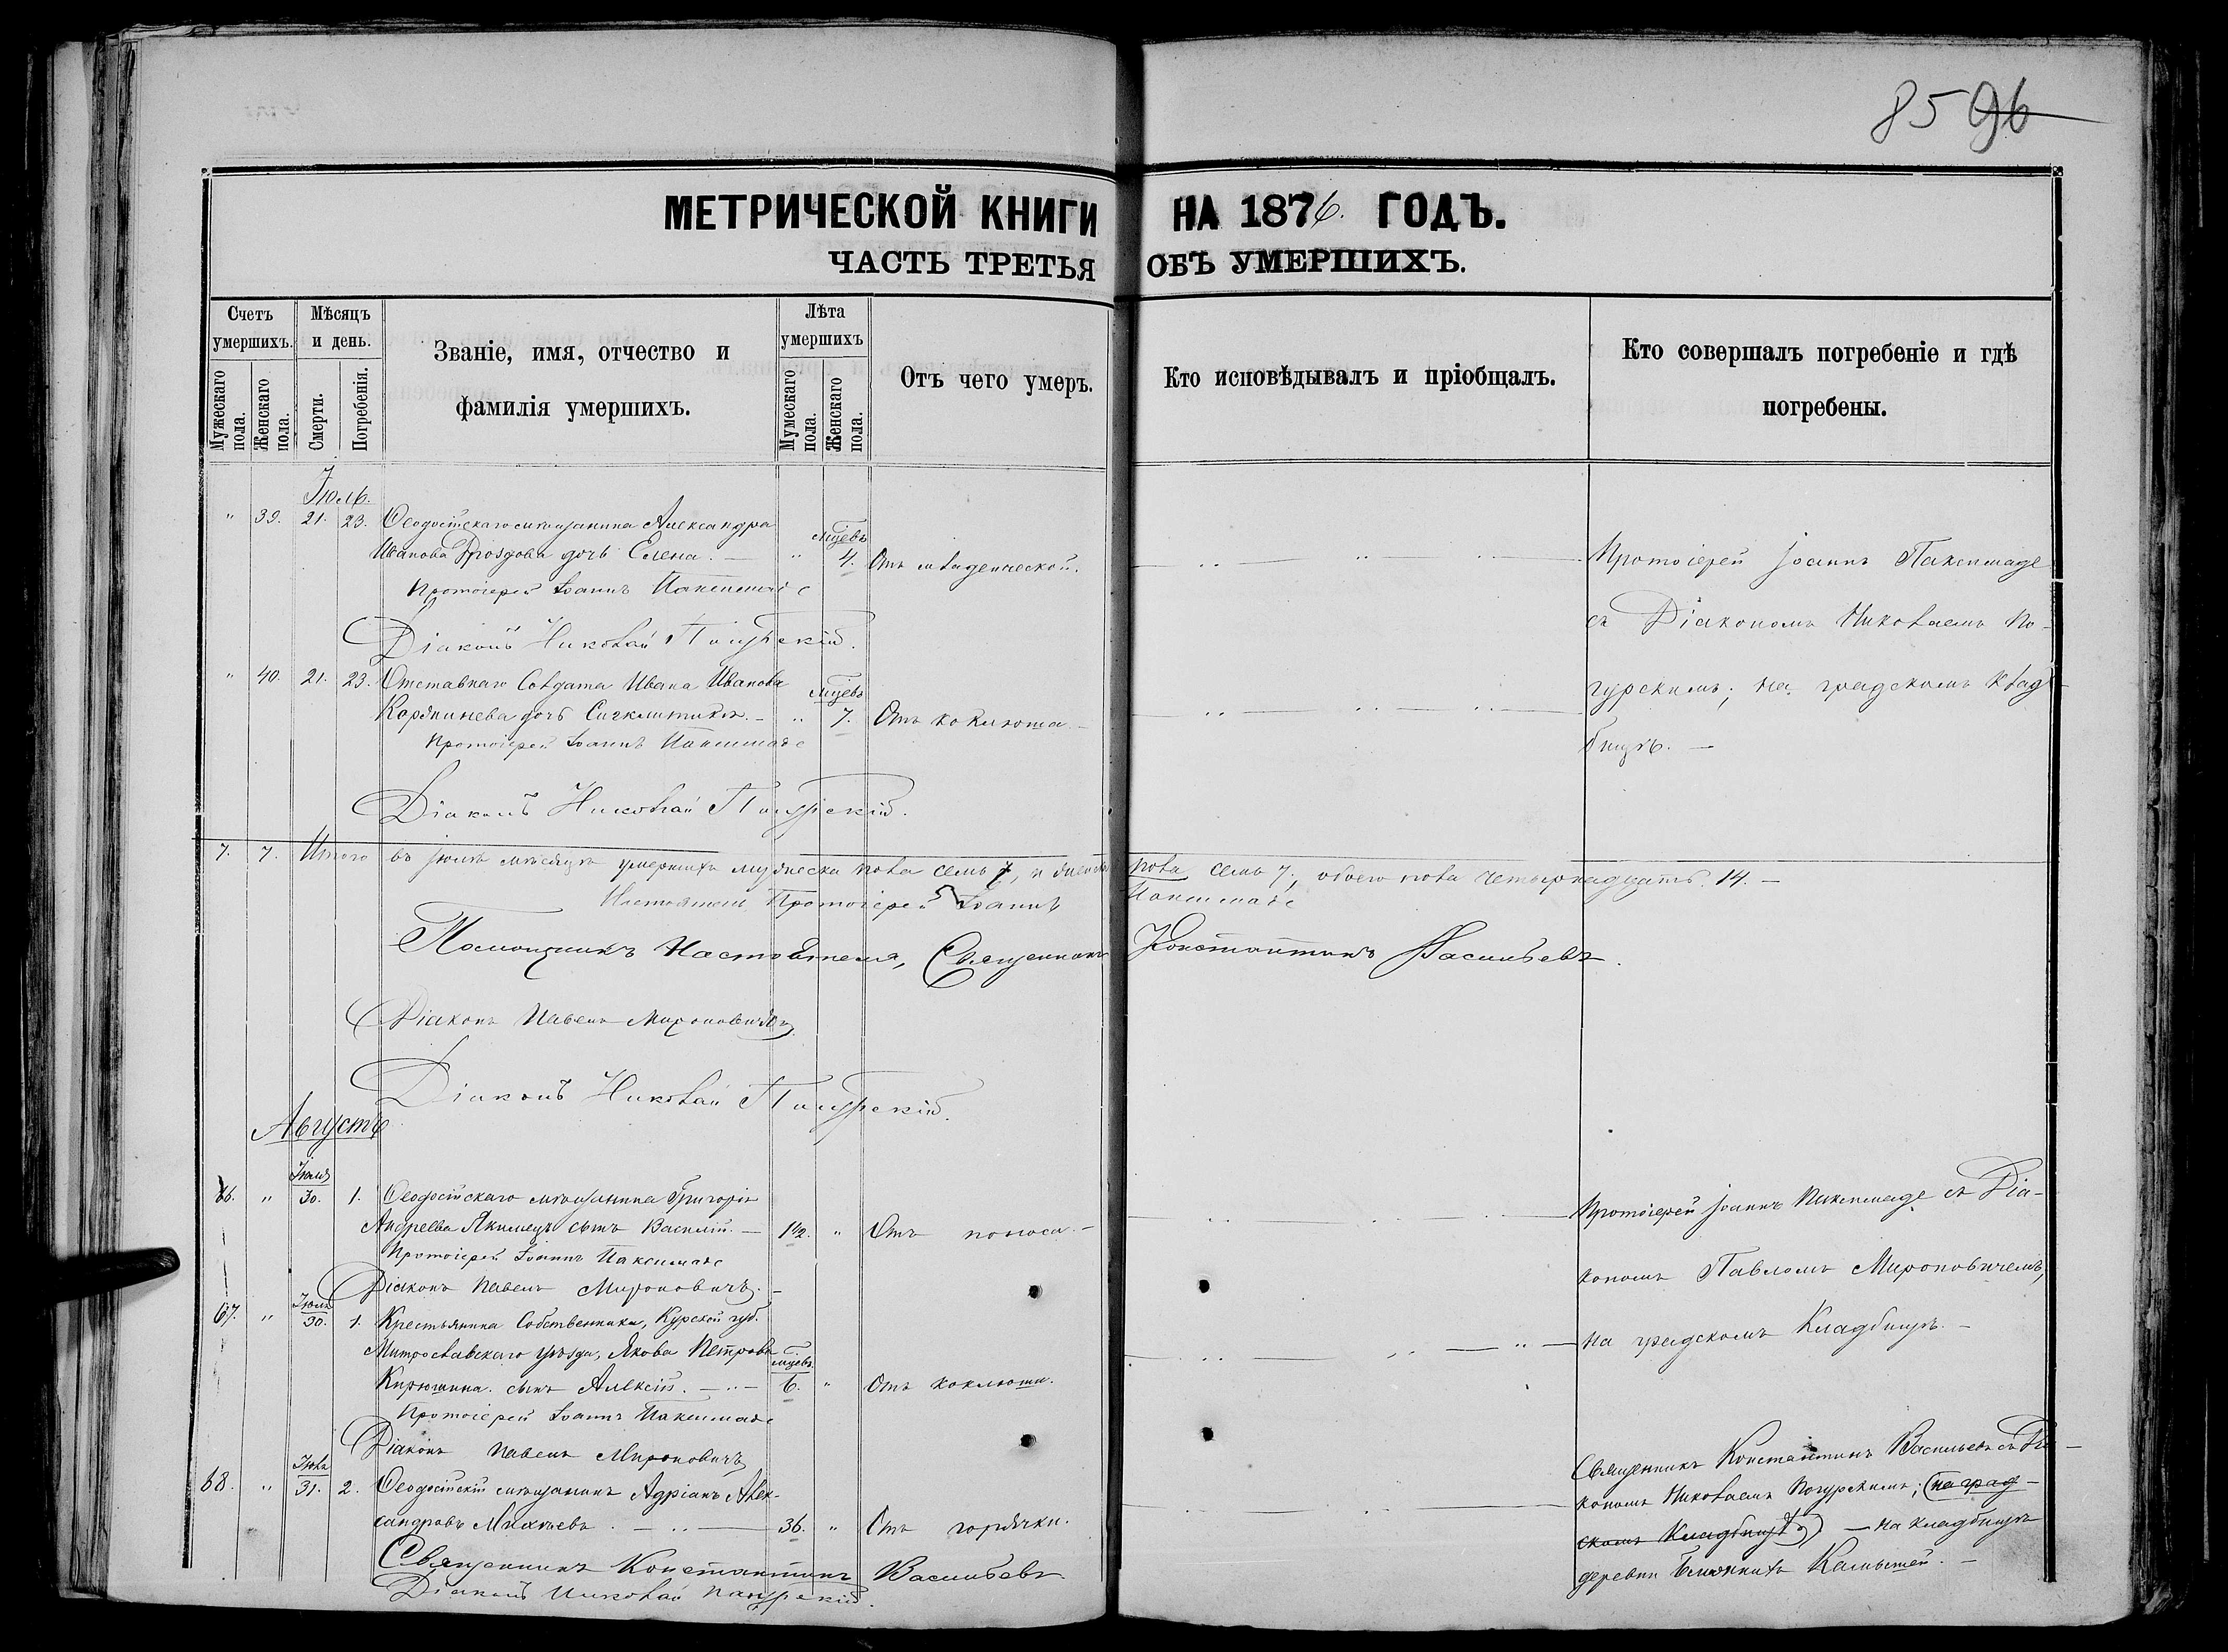 85 96
МЕТРИЧЕСКОЙ КНИГИ НА 1876. ГОДЪ.
ЧАСТЬ ТРЕТЬЯ ОБЪ УМЕРШИХЪ.
Счетъ умершихъ.
Мужескаго пола.
Женскаго пола.
Мѣсяцъ и день.
Смерти.
Погребенія.
Званіе, имя, отчество и
фамилія умершихъ.
Лѣта умершихъ
Мужескаго пола.
Женскаго пола.
Отъ чего умеръ.
Кто исповѣдывалъ и пріобщалъ.
Кто совершалъ погребеніе и гдѣ
погребены.
Іюль.
" 39. 21. 23. Ѳеодосійскаго мѣщанина Александра
Иванова Дроздова дочь Елена. — " мцевъ 4. Отъ младенческой.
Протоіерей Іоаннъ Пакемпаде
съ Діакономъ Николаемъ По-
гурскимъ; на градскомъ клад-
бищѣ. —
Протоіерей Іоаннъ
Діаконъ Николай Погурскій.
" 40. 21. 23. Отставнаго Солдата Ивана Иванова
дочь — " мцевъ 7. Отъ коклюша —
Протоіерей Іоаннъ
Діаконъ Николай Погурскій.
7. 7. Итого въ Іюлѣ мѣсяцѣ умершихъ мужеска пола семь 7, и женска пола семь 7, обоего пола четырнадцать. 14. —
Настоятель Протоіерей Іоаннъ
Помощникъ Настоятеля, Священникъ Константинъ Васильевъ.
Діаконъ Павелъ Мироновичъ
Діаконъ Николай Погурскій.
Августъ
66. " Іюля 30. 1. Ѳеодосійскаго мѣщанина Григорія
Андреева Якимецъ сынъ Василій. — 1½. " Отъ поноса. —
Протоіерей Іоаннъ
Діаконъ Павелъ Мироновичъ. —
Протоіерей Іоаннъ съ Діа-
кономъ Павломъ Мироновичемъ,
на градскомъ Кладбищѣ. —
67. " Іюля 30. 1. Крестьянина Собственника, Курской губ.
уѣзда, Якова Петрова
Кирюшина. сынъ Алексій. — мцевъ 6. " Отъ коклюша.
Протоіерей Іоаннъ
Діаконъ Павелъ Мироновичъ
68. " Іюля 31. 2. Ѳеодосійскій мѣщанинъ Адріанъ Алек-
сандровъ Михѣевъ. — 36. " Отъ горячки.
Священникъ Константинъ Васильевъ
Діаконъ Николай Погурскій.
Священникъ Константинъ Васильевъ съ Діа-
кономъ Николаемъ Погурскимъ; (на град-
скомъ Кладбищѣ) — на кладбищѣ
деревни Ближнихъ Камышей. —